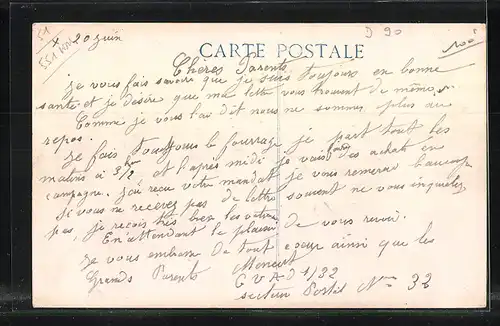 51
551
20 juin
D 90
CARTE POSTALE
Chères Parents
je vous fais savoire que je suis toujours en bonne
santé et je désire que ma lettre vous trouvent de même
Comme je vous l'ai dit nous ne sommes plus au
repos.
je fais toujours le fourrage je part tout les
matins à 3h½ et l'après midi je vais des achats en
campagne. j'ai reçu votre mandat je vous remerci beaucoup
Si vous ne recevez pas de lettre souvent ne vous inquietez
pas, je reçois très bien les votres
En attendant le plaisir de vous revoir.
je vous embrasse de tout cœur ainsi que les
Grands Parents
C V A D 1/32
secteur Postal No 32